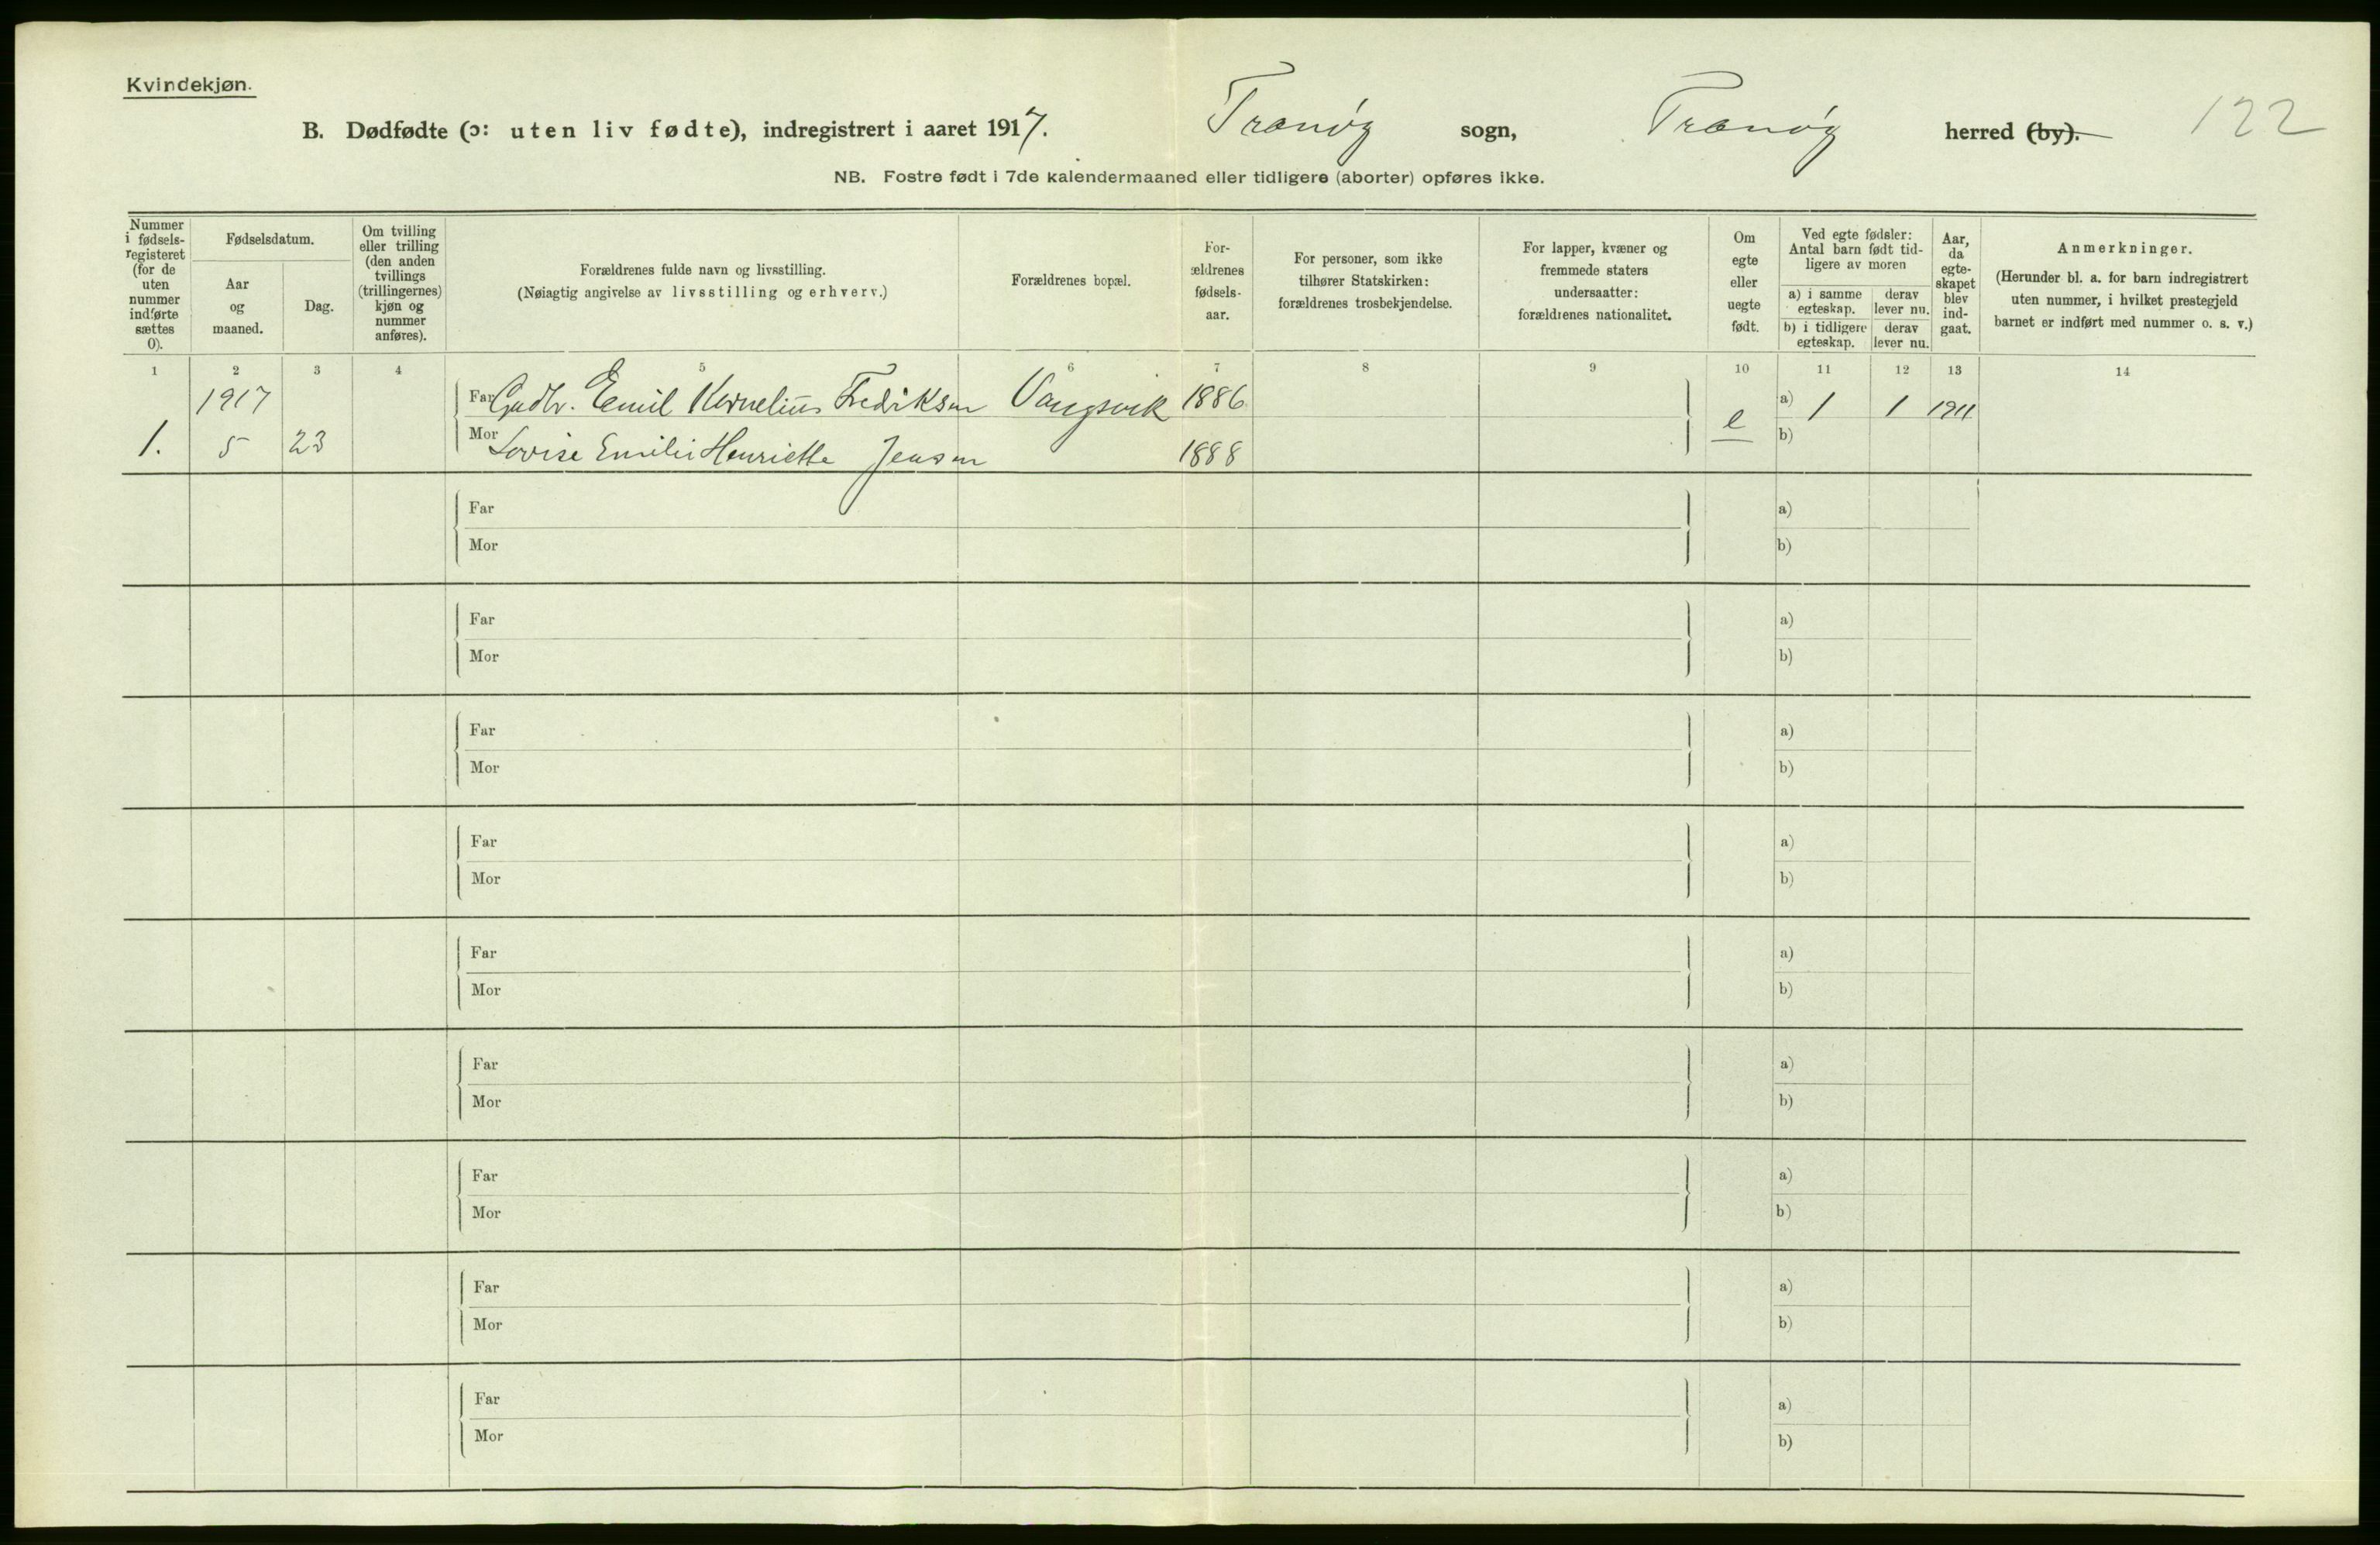 Kvindekjøn.
B. Dødfødte (ɔ: uten liv fødte), indregistrert i aaret 1917. Tranøy sogn, Tranøy herred (by). 122
NB. Fostre født i 7de kalendermaaned eller tidligere (aborter) opføres ikke.
Nummer i fødsels-registeret (for de uten nummer indførte sættes 0).
Fødselsdatum.
Aar og maaned.
Dag.
Om tvilling eller trilling (den anden tvillings (trillingernes) kjøn og nummer anføres).
Forældrenes fulde navn og livsstilling.
(Nøiagtig angivelse av livsstilling og erhverv.)
Forældrenes bopæl.
For-ældrenes fødsels-aar.
For personer, som ikke tilhører Statskirken: forældrenes trosbekjendelse.
For lapper, kvæner og fremmede staters undersaatter: forældrenes nationalitet.
Om egte eller uegte født.
Ved egte fødsler: Antal barn født tid-ligere av moren
a) i samme egteskap.
derav lever nu.
b) i tidligere egteskap.
derav lever nu.
Aar, da egte-skapet blev ind-gaat.
Anmerkninger.
(Herunder bl. a. for barn indregistrert uten nummer, i hvilket prestegjeld barnet er indført med nummer o. s. v.)
1 2 3 4 5 6 7 8 9 10 11 12 13 14
1917 Far Gudbr. Emil Kornelius Fredriksen Vangsvik 1886 e a) 1 1 1911
1. 5 23 Mor Lovise Emilie Henriette Jensen 1888 b)
Far a)
Mor b)
Far a)
Mor b)
Far a)
Mor b)
Far a)
Mor b)
Far a)
Mor b)
Far a)
Mor b)
Far a)
Mor b)
Far a)
Mor b)
Far a)
Mor b)